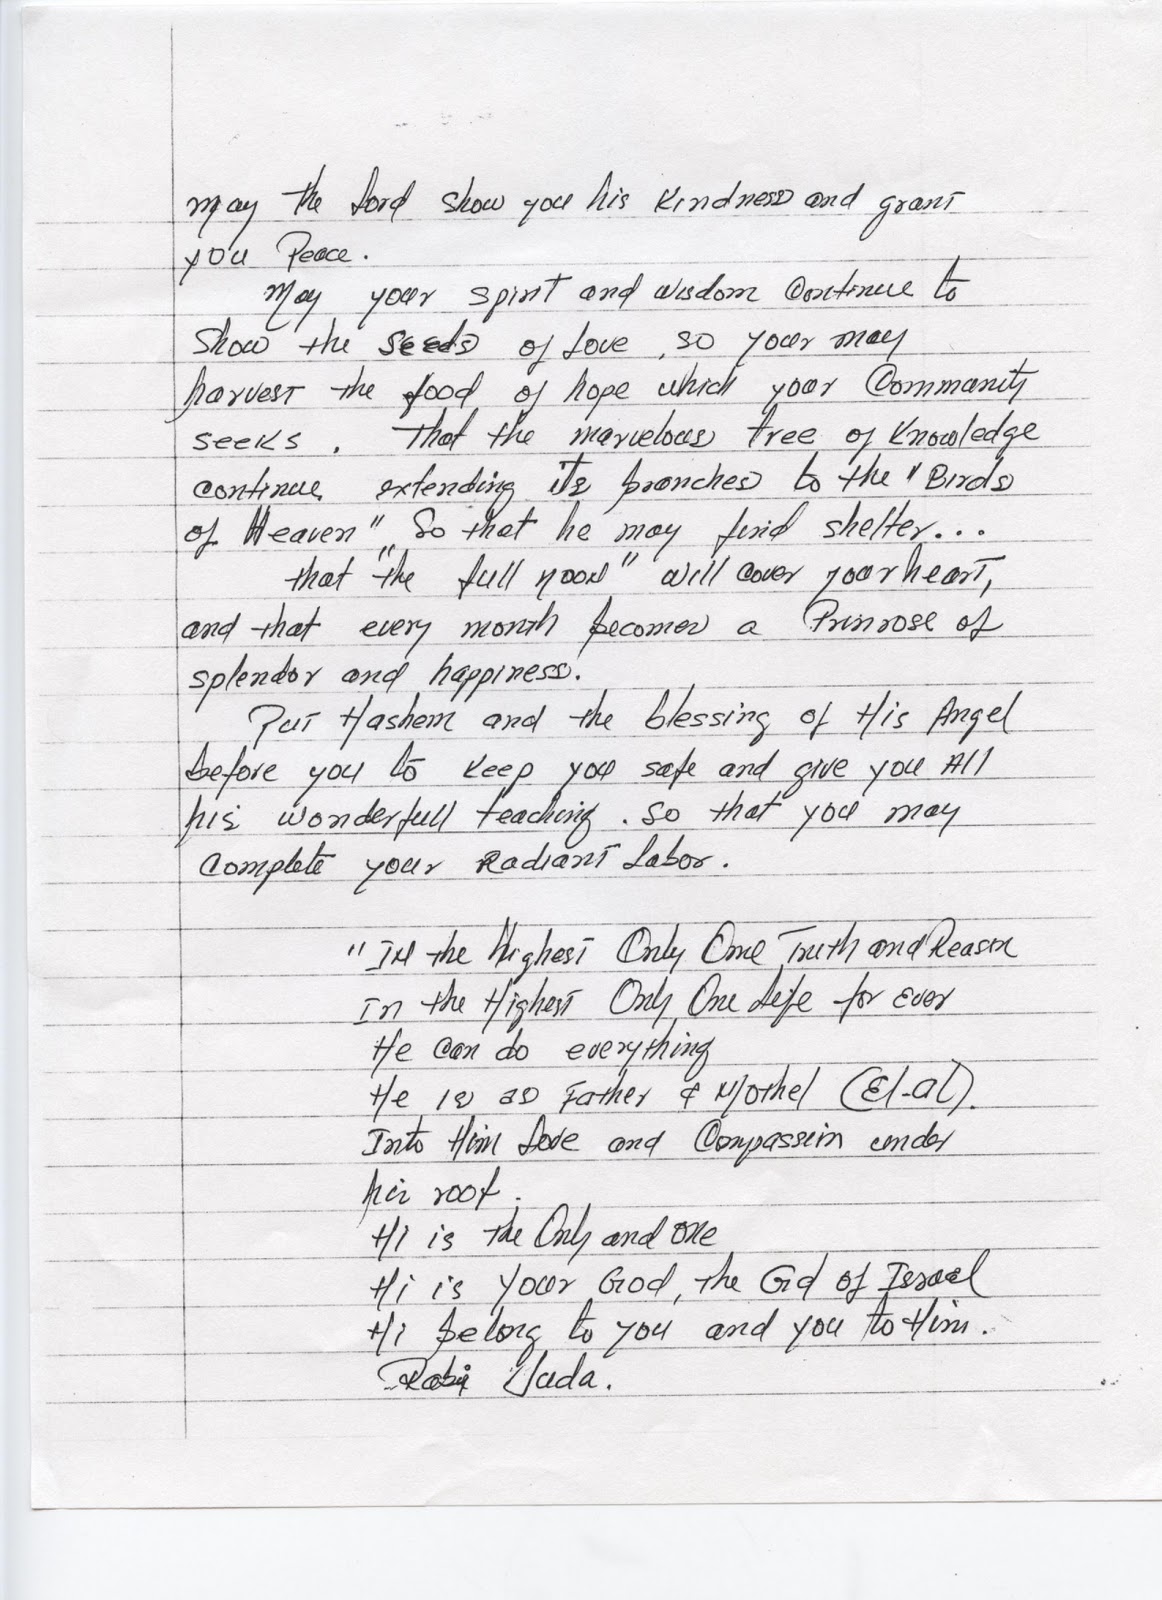 may the Lord show you his kindness and grant
you Peace.
May your spirit and wisdom continue to
show the seeds of love, so your may
harvest the food of hope which your Community
seeks. That the marvelous tree of Knowledge
continue extending its branches to the "Birds
of Heaven" So that he may find shelter...
that "the full noon" will cover your heart,
and that every month becomes a Prinrose of
splendor and happiness.
Put Hashem and the blessing of His Angel
before you to keep you safe and give you All
his wonderfull teaching. so that you may
complete your Radiant Labor.
"In the Highest Only One Truth and Reason
In the Highest Only One Life for Ever
He can do everything
He is as Father & Mother (El-al).
Into Him Love and Compassion under
his roof.
Hi is the Only and one
Hi is your God, the Gd of Israel
Hi belong to you and you to Him.
Rabi Juda.